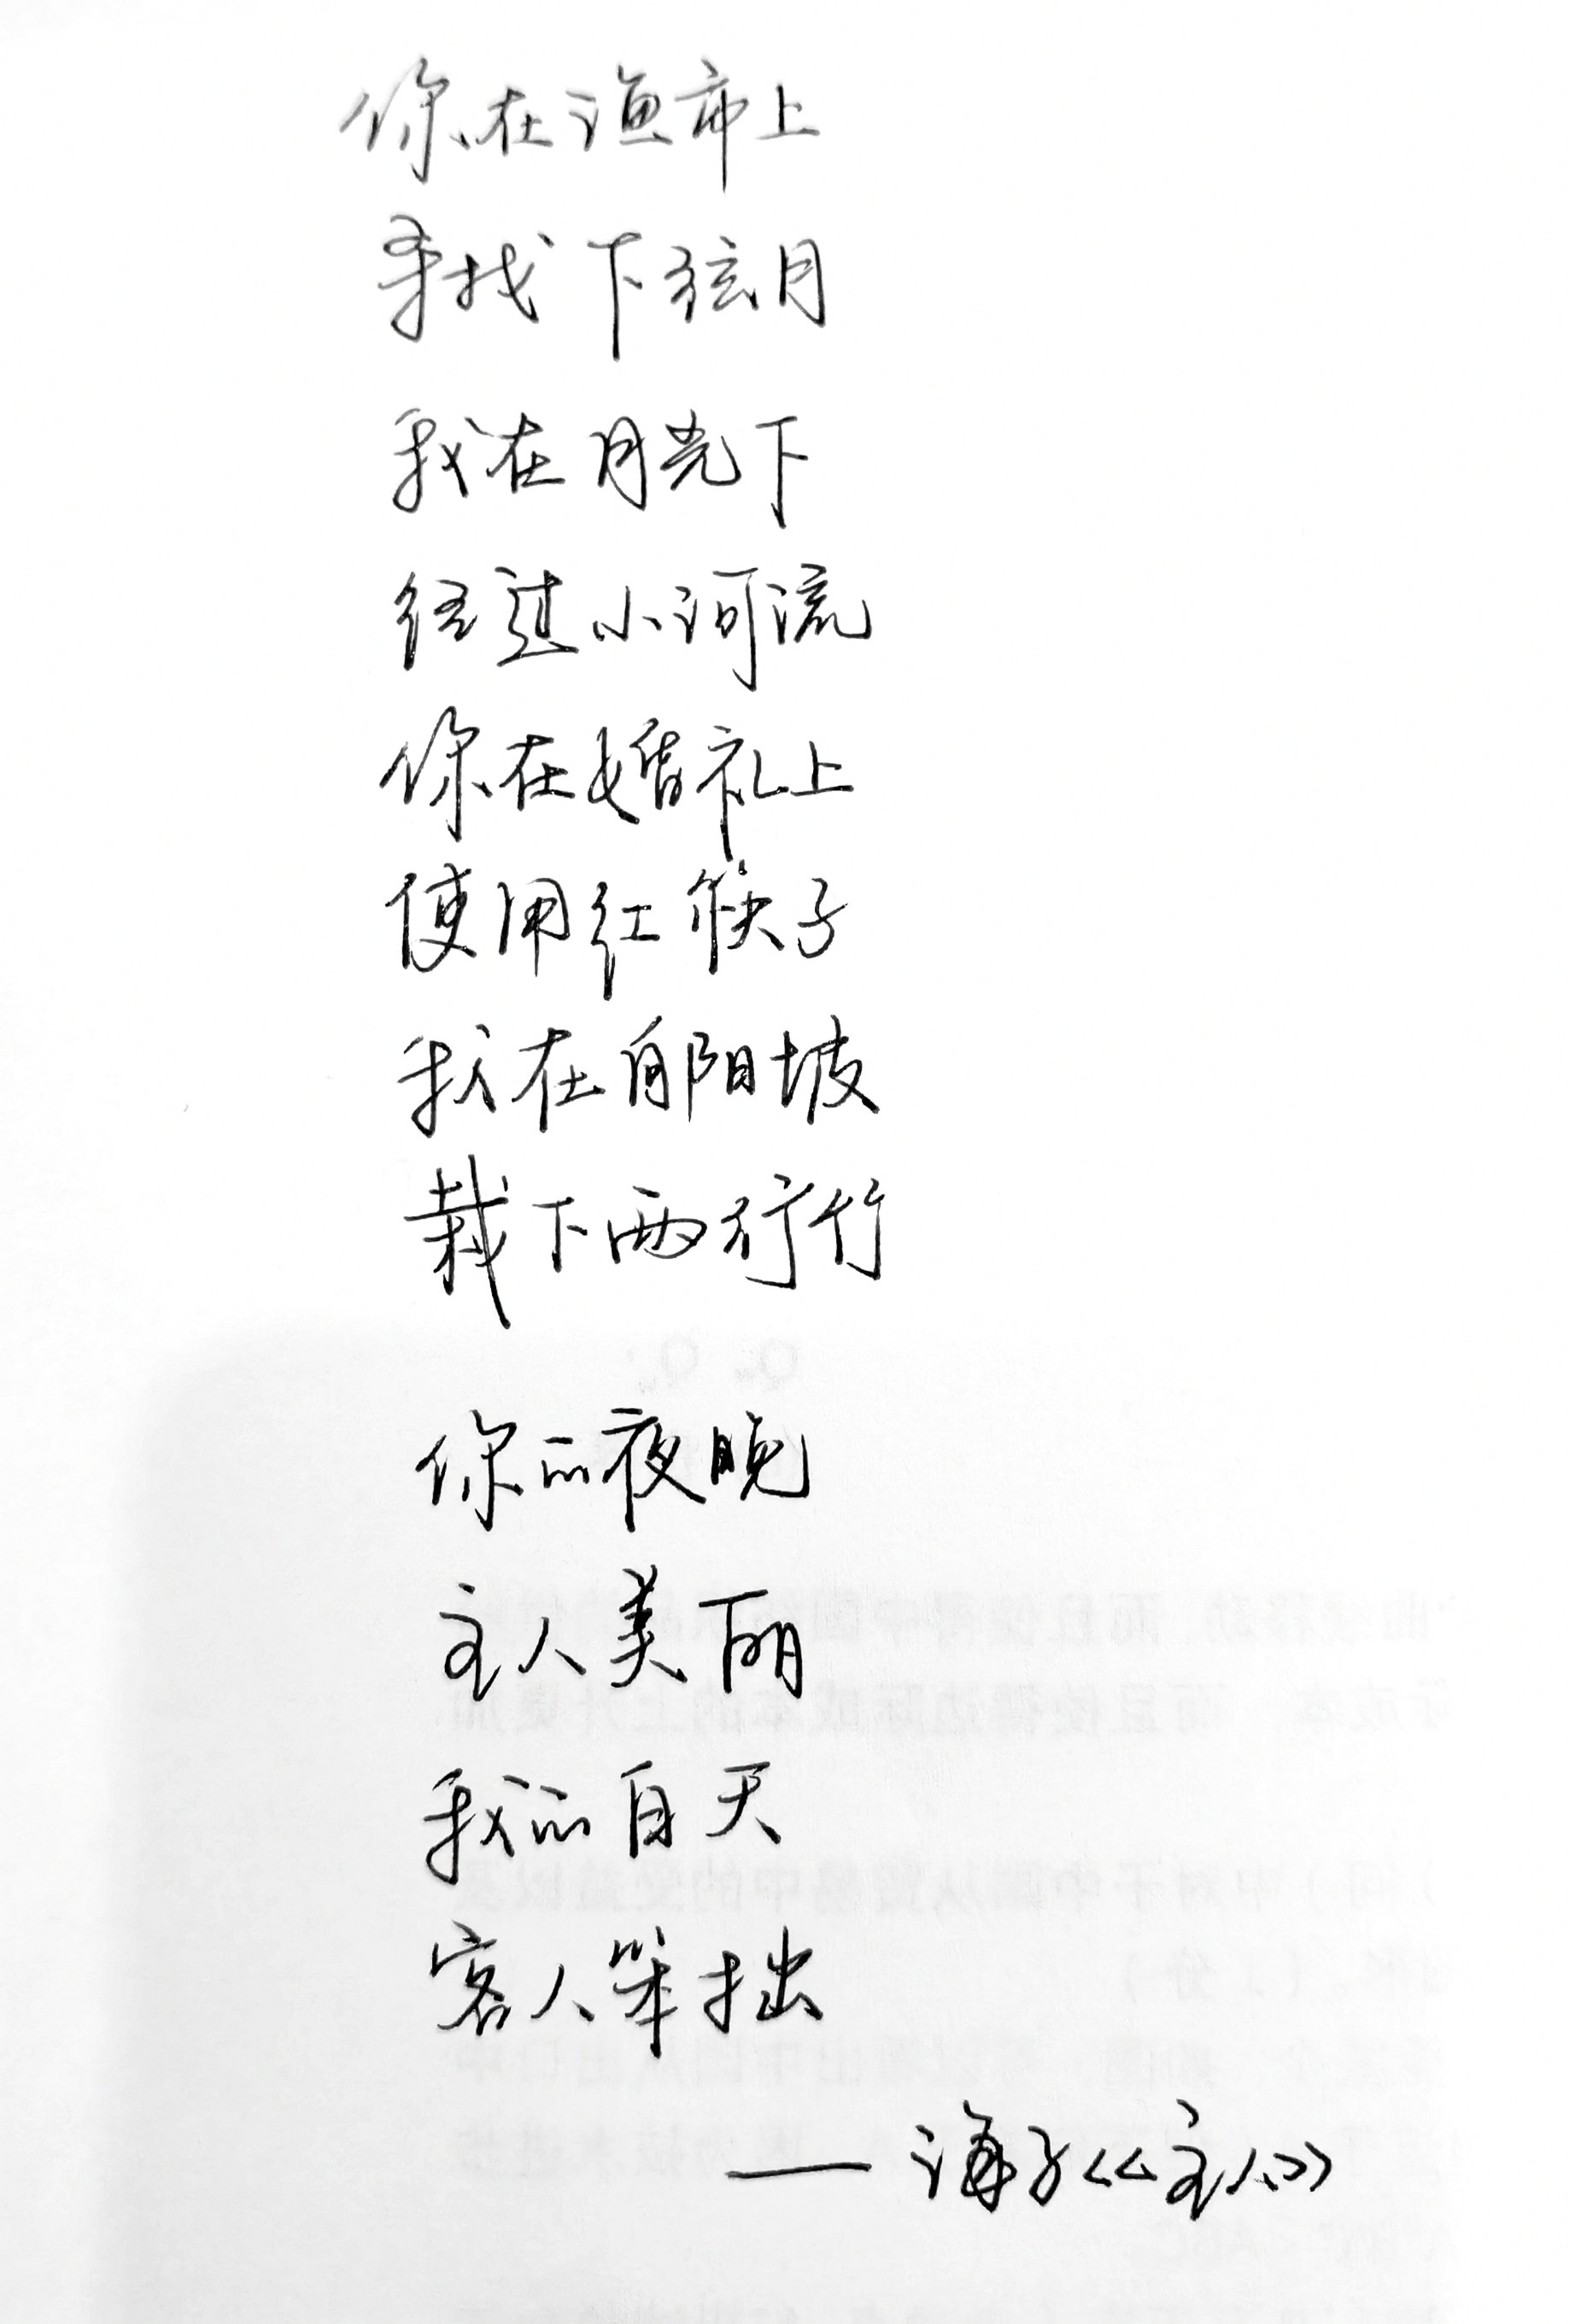 你在渔市上
寻找下弦月
我在月光下
经过小河流
你在婚礼上
使用红筷子
我在向阳坡
栽下两行竹
你的夜晚
主人美丽
我的白天
客人笨拙
——海子《主人》